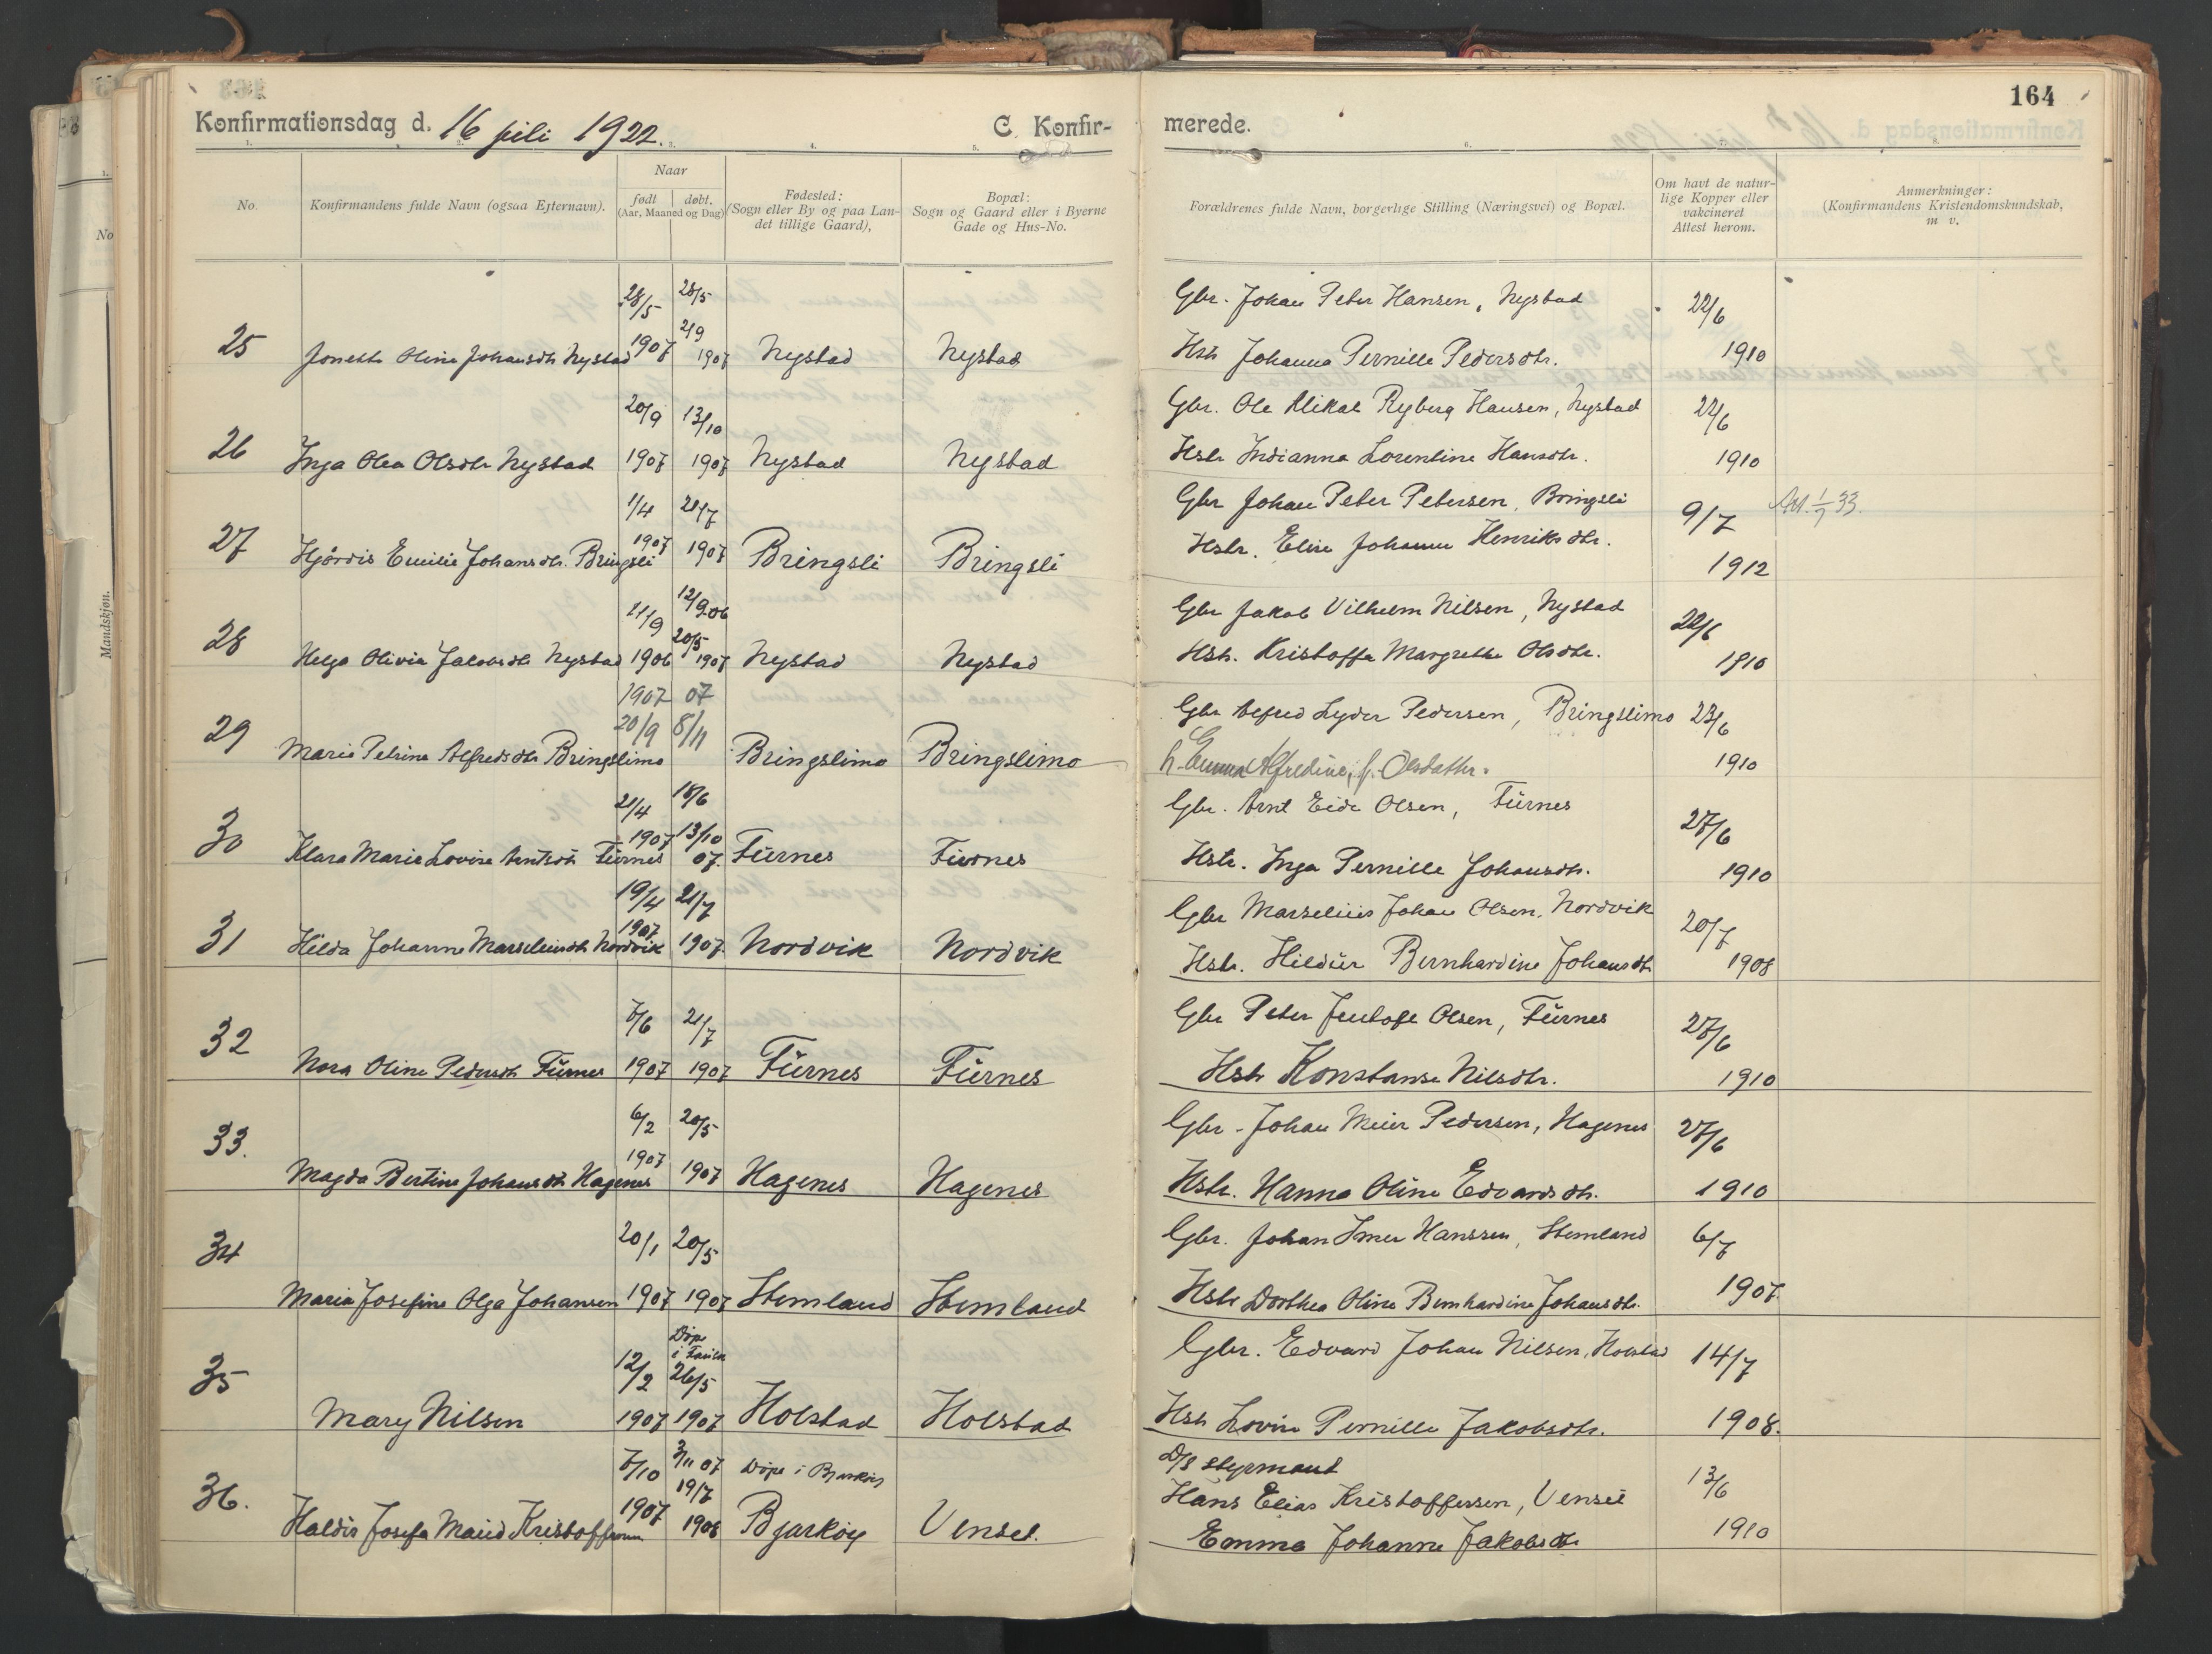 164
Konfirmationsdag d. 16 juli 1922.
C. Konfir-
merede.
1.
3.
4.
5.
6.
No.
Konfirmandens fulde Navn (ogsaa Efternavn).
Naar
født
døbt.
(Aar, Maaned og Dag)
Fødested:
(Sogn eller By og paa Lan-
det tillige Gaard),
Bopæl:
Sogn og Gaard eller i Byerne
Gade og Hus-No.
Forældrenes fulde Navn, borgerlige Stilling (Næringsvei) og Bopæl.
Om havt de natur-
lige Kopper eller
vakcineret
Attest herom.
Anmerkninger:
(Konfirmandens Kristendomskundskab,
m v.
No
Mandskjøn.
28/5 28/5 Gbr. Johan Peter Hansen, Nystad 22/6
25 Jonette Oline Johansdtr Nystad 1907 2/9 1907 Nystad Nystad Hstr Johanna Pernille Pedersdtr. 1910
20/9 13/10 Gbr. Ole Mikal Ryberg Hansen, Nystad 22/6
26 Inga Olea Olsdtr Nystad 1907 1907 Nystad Nystad Hstr Indianna Lorentine Hansdtr. 1910
1/4 21/7 Gbr Johan Peter Petersen, Bringsli 9/7 1/7 33.
27 Hjördis Emilie Johansdtr. Bringsli 1907 1907 Bringsli Bringsli Hstr. Elise Johanne Henriksdtr. 1912
11/9 12/9 06 Gbr Jakob Vilhelm Nilsen, Nystad 22/6
28 Helga Olivia Jakobsdtr Nystad 1906 20/5 1907 Nystad Nystad Hstr. Kristoffa Margrethe Olsdtr. 1910
1907 07 Gbr Alfred Lyder Pedersen, Bringslimo 23/6
29 Marie Petrine Alfredsdtr Bringslimo 20/9 8/11 Bringslimo Bringslimo h. Emma Alfredine, f. Olsdatter. 1910
21/4 18/6 Gbr. Arnt Eide Olsen, Furnes 27/6
30 Klara Marie Lovise Arntsdtr Furnes 1907 13/10 07. Furnes Furnes Hstr. Inga Pernille Johansdtr. 1910
19/4 21/7 Gbr Marselius Johan Olsen, Nordvik 20/7
31 Hilda Johanne Marseliusdtr Nordvik 1907 1907 Nordvik Nordvik Hstr. Hildur Bernhardine Johansdtr 1908
7/6 21/7 Gbr Peter Jentoft Olsen, Furnes 27/6
32 Nora Oline Pedersdtr Furnes 1907 1907 Furnes Furnes Hstr Konstanse Nilsdtr. 1910
6/2 20/5 Gbr - Johan Meier Pedersen, Hagenes 27/6
33. Magda Bertine Johansdtr Hagenes 1907 1907 Hagenes Hagenes Hstr. Hanna Oline Edvardsdtr. 1910
20/1 20/5 Gbr. Johan Imer Hanssen, Stemland 6/7
34 Maria Josefine Olga Johansen 1907 1907 Stemland Stemland Hstr Dorthea Oline Bernhardine Johansdtr. 1907.
12/2 Döpt i 26/5 Gbr. Edvard Johan Nilsen, Holstad 14/7
35 Mary Nilsen 1907 1907 Holstad Holstad Hstr Lovise Pernille Jakobsdtr. 1908.
7/10 3/11 07 Döpt i Bjarköy D/S styrmand 13/6
19/7 Hans Elias Kristoffersen, Venset
36. Haldis Josefa Maud Kristoffersen 1907 1908 Bjarköy Venset. Emma Johanne Jakobsdtr 1910